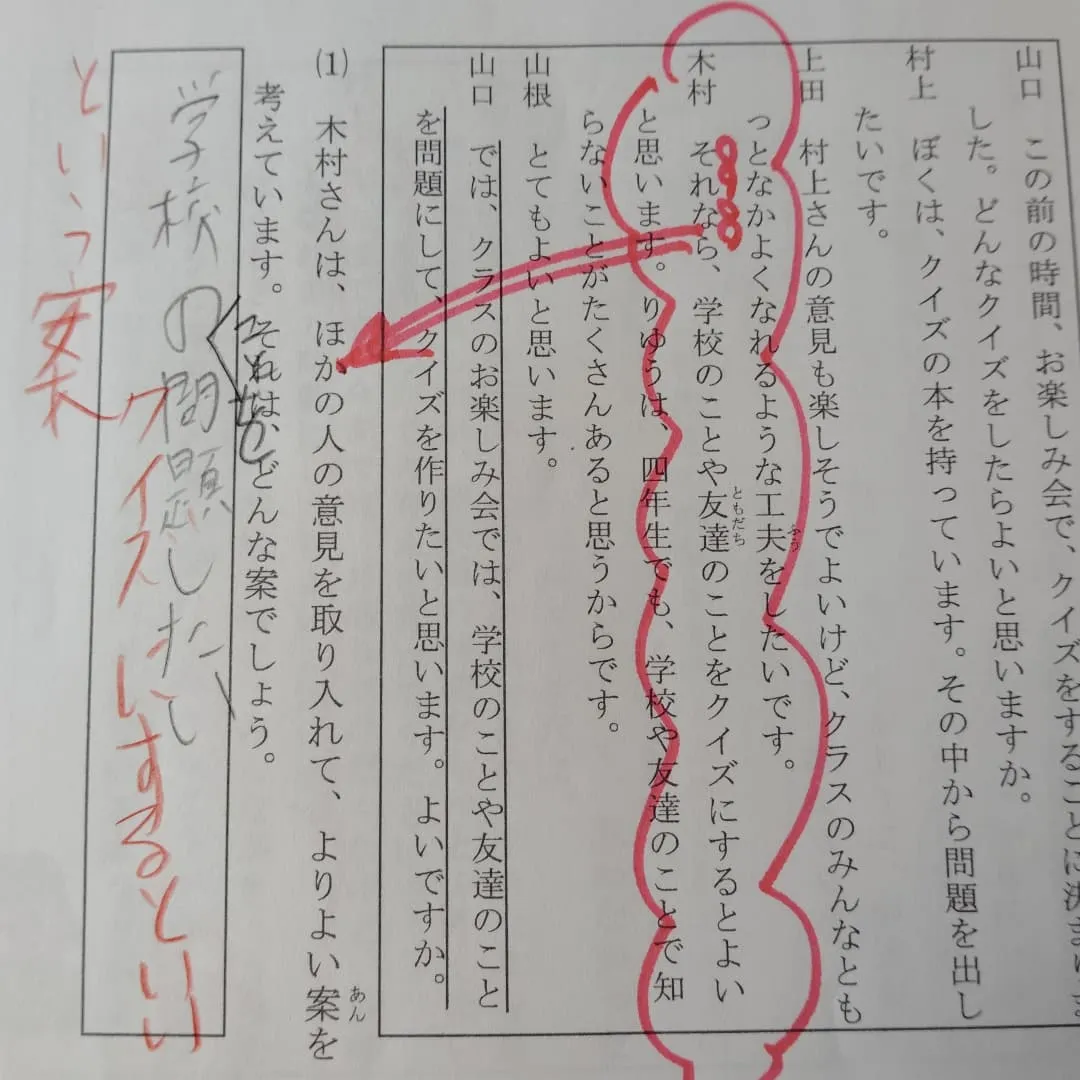 山口　この前の時間、お楽しみ会で、クイズをすることに決まりま
した。どんなクイズをしたらよいと思いますか。
村上　ぼくは、クイズの本を持っています。その中から問題を出し
たいです。
上田　村上さんの意見も楽しそうでよいけど、クラスのみんなとも
っとなかよくなれるような工夫をしたいです。
ふう
木村　それなら、学校のことや友達のことをクイズにするとよい
ともだち
と思います。りゆうは、四年生でも、学校や友達のことで知
らないことがたくさんあると思うからです。
山根　とてもよいと思います。
山口　では、クラスのお楽しみ会では、学校のことや友達のこと
を問題にして、クイズを作りたいと思います。よいですか。
(1)　木村さんは、ほかの人の意見を取り入れて、よりよい案を
あん
考えています。それは、どんな案でしょう。
学校の問題したい
クイズにするといい
という案